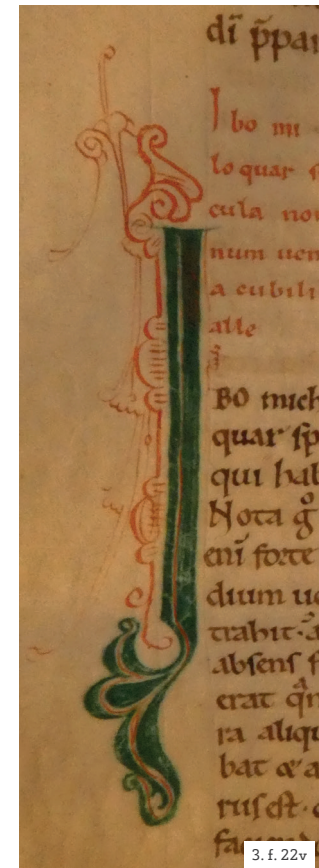 di p̄pai
I bo mi
loquar s
cula no
num uen
a cubili
alle
BO mich
quar sp
qui hab
Nota g
eni forte
dium ue
trahit· a
absens f
erat qn
ra aliqu
bat & a
rus est· 
3. f. 22v